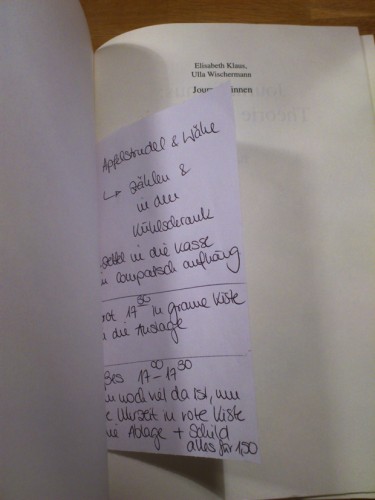 Elisabeth Klaus,
Ulla Wischermann
Jour innen
Apfelstrudel & Wähe
↳ zählen &
in den
Kühlschrank
in die Kasse
compatsch aufhäng
rot 17³⁰ in graue Kiste
die Auslage
17⁰⁰ - 17³⁰
noch viel da ist, um
Uhrzeit in rote Kiste
Ablage + Schild
alles für 1,50